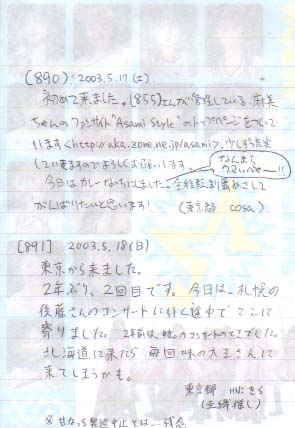 [890] 2003.5.17(土)
初めて来ました。[855]さんが管理している、麻美
ちゃんのファンサイト"Asami Style"のトップページをつくって
います<http://asami.zone.ne.jp/asami>。少しずつ充実
していきますのでよろしくお願いします。
なんまら
うまいべやー!!
今日はカレー
がんばりたいと思います! (東京都 cosa.)
[891] 2003.5.18(日)
東京から来ました。
2年ぶり、2回目です。今日は、札幌の
後藤さんのコンサートに行く途中でここに
寄りました。2年前は、娘。のコンサートのときでした。
北海道に来たら毎回味の大王さんに
来てしまうかも。
東京都 HN:きら
(圭織推し)
※ 甘なっち製造中止とは…残念